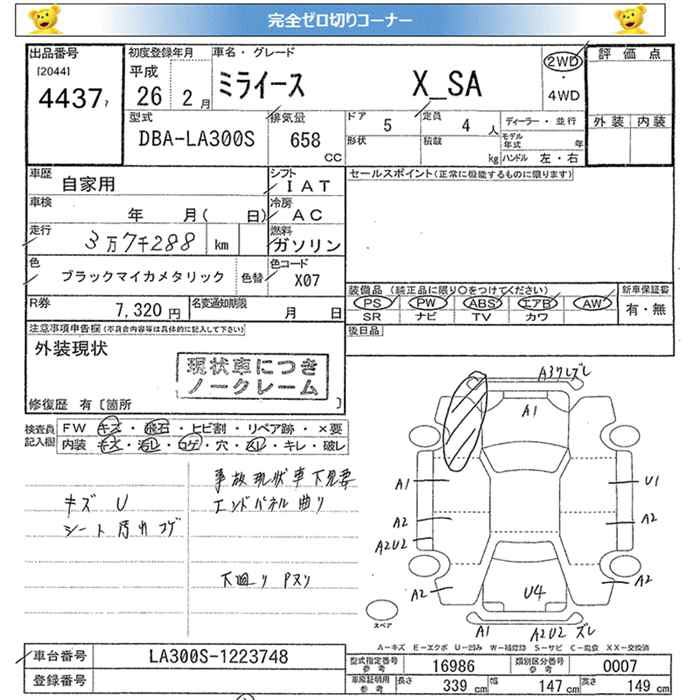 完全ゼロ切りコーナー
出品番号
[2044]
4437
初度登録年月
平成
26 2月
車名・グレード
ミライース X_SA
2WD
・
4WD
評価点
外装 内装
型式
DBA-LA300S
排気量
658
CC
ドア 5
定員 4 人
形状
積載 kg
ディーラー・並行
モデル年式 年
ハンドル 左・右
車歴 自家用
シフト
IAT
セールスポイント(正常に機能するものに限ります)
車検 年 月( 日)
冷房
AC
走行 3万7千288 km
燃料
ガソリン
色 ブラックマイカメタリック 色替
色コード
X07
装備品 (純正品に限り○をつけてください)
PS PW ABS エアB AW
SR ナビ TV カワ
新車保証書
有・無
R券 7,320円
名変通知期限 月 日
後日品
注意事項申告欄(不具合内容等は具体的に記入して下さい)
外装現状
現状車につき
ノークレーム
修復歴 有〔箇所 〕
検査員
記入欄
FW キズ・飛石・ヒビ割・リペア跡・×要
内装 キズ・汚レ・コゲ・穴・スレ・キレ・破レ
キズ U
シート汚れ コゲ
事故現状車 下見要
エンドパネル曲り
下廻り Pヌリ
A3ワレズレ
A1
A1
U1
A2
A2
A2U2
A2
A2
U4
A1
A2U2 ズレ
スペア
A−キズ E−エクボ U−凹み W−補修跡 S−サビ C−腐食 XX−交換済
車台番号 LA300S-1223748
登録番号
型式指定番号
参考
16986
類別区分番号
参考
0007
車庫証明用
参考
長さ 339 cm
幅 147 cm
高さ 149 cm